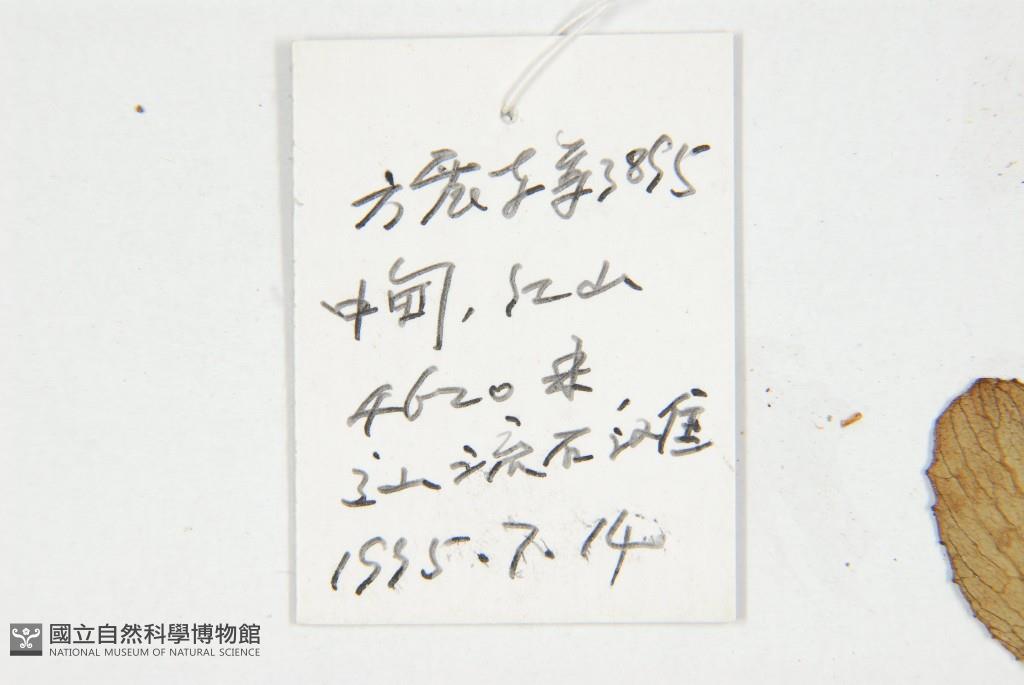 方震东等3895
中甸,红山
4620米
高山流石滩
1995.7.14
國立自然科學博物館
NATIONAL MUSEUM OF NATURAL SCIENCE